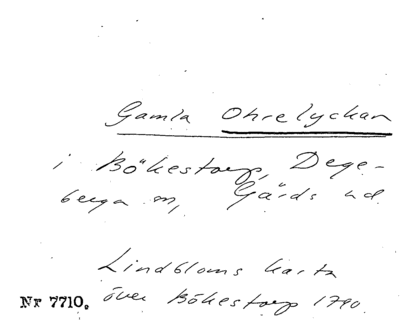 Gamla Ohrelyckan
i Bökestorp, Dege-
berga sn, Gärds hd
Lindbloms karta
över Bökestorp 1790.
Nr 7710.